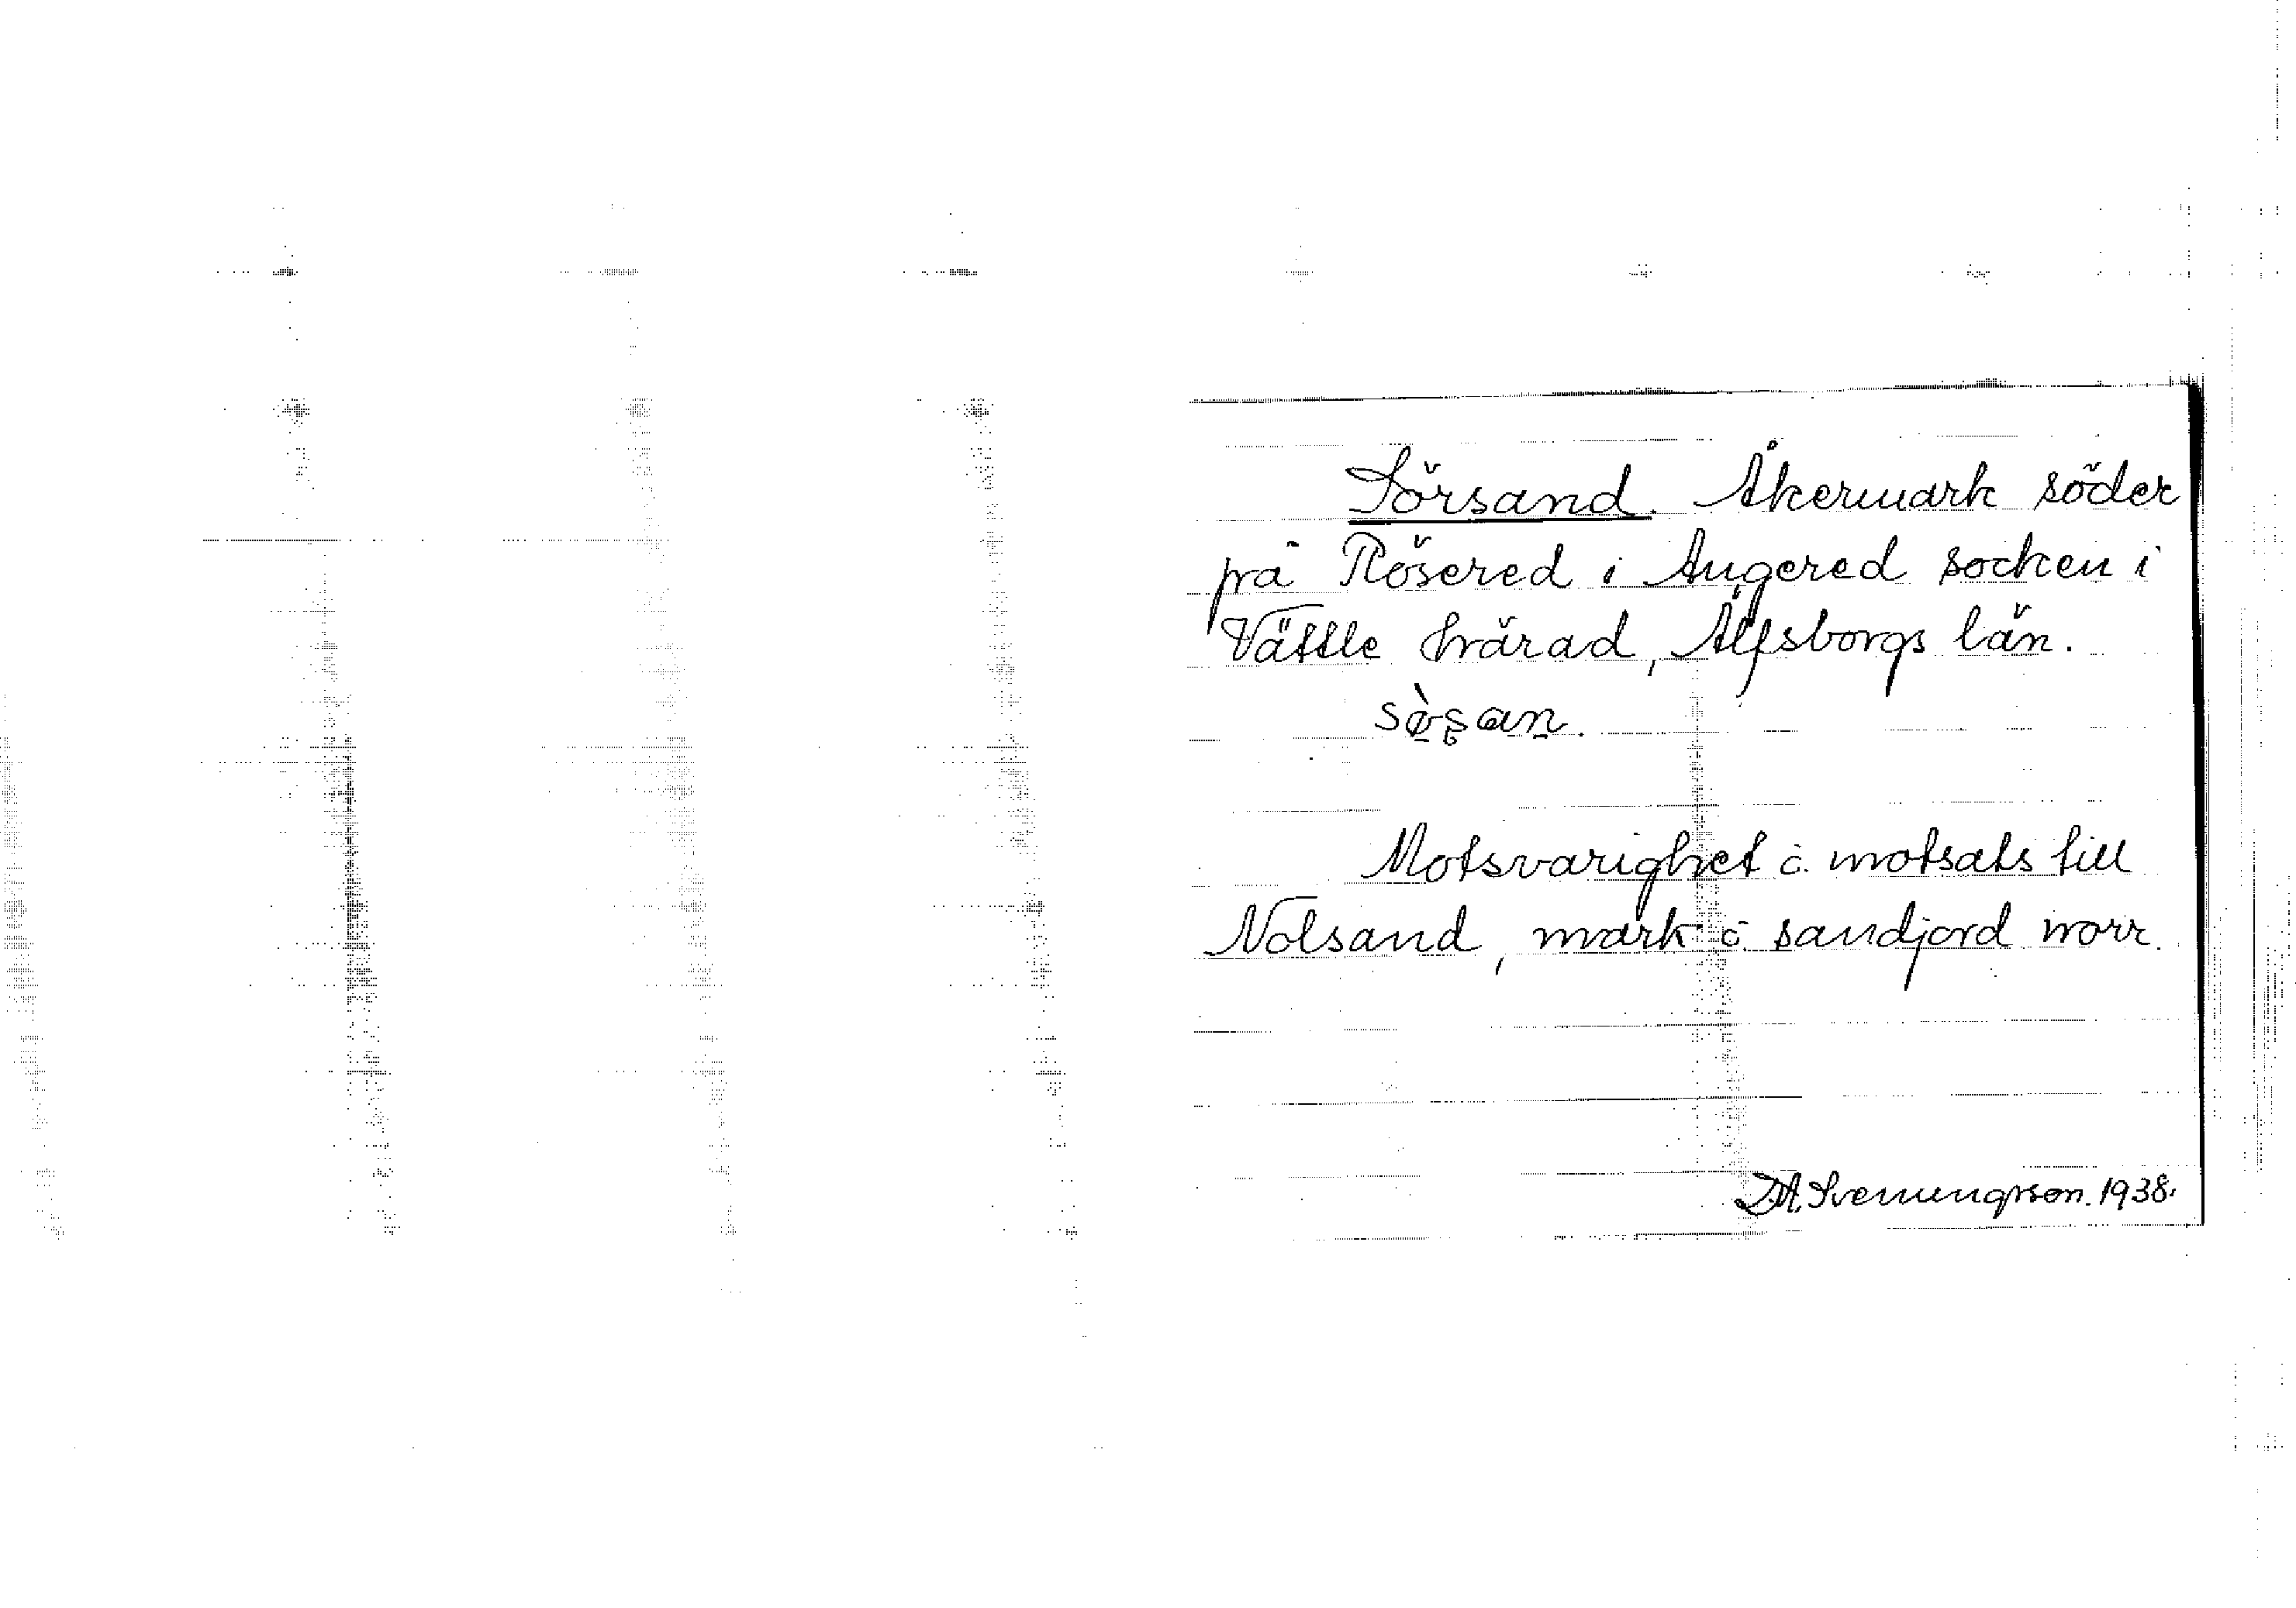 Sörsand. Åkermark söder
på Rösered i Angered socken i
Vättle härad, Älfsborgs län.
sø̀ʂan.
Motsvarighet o. motsats till
Nolsand, mark o. sandjord norr.
Svenungsson. 1938.